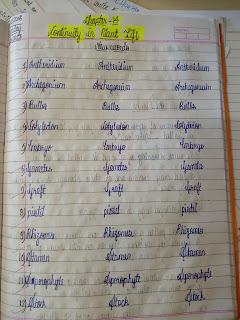 Chapter-14
Continuity in Plant Life
New words
1) Antheridium Antheridium Antheridium
2) Archegonium Archegonium Archegonium
3) Bulbs Bulbs Bulbs
4) Cotyledon Cotyledon Cotyledon
5) Embryo Embryo Embryo
6) Gametes Gametes Gametes
7) Graft Graft Graft
8) pistil pistil pistil
9) Rhizomes Rhizomes Rhizomes
10) Stamen Stamen Stamen
11) Sporophyte Sporophyte Sporophyte
12) Stock Stock Stock